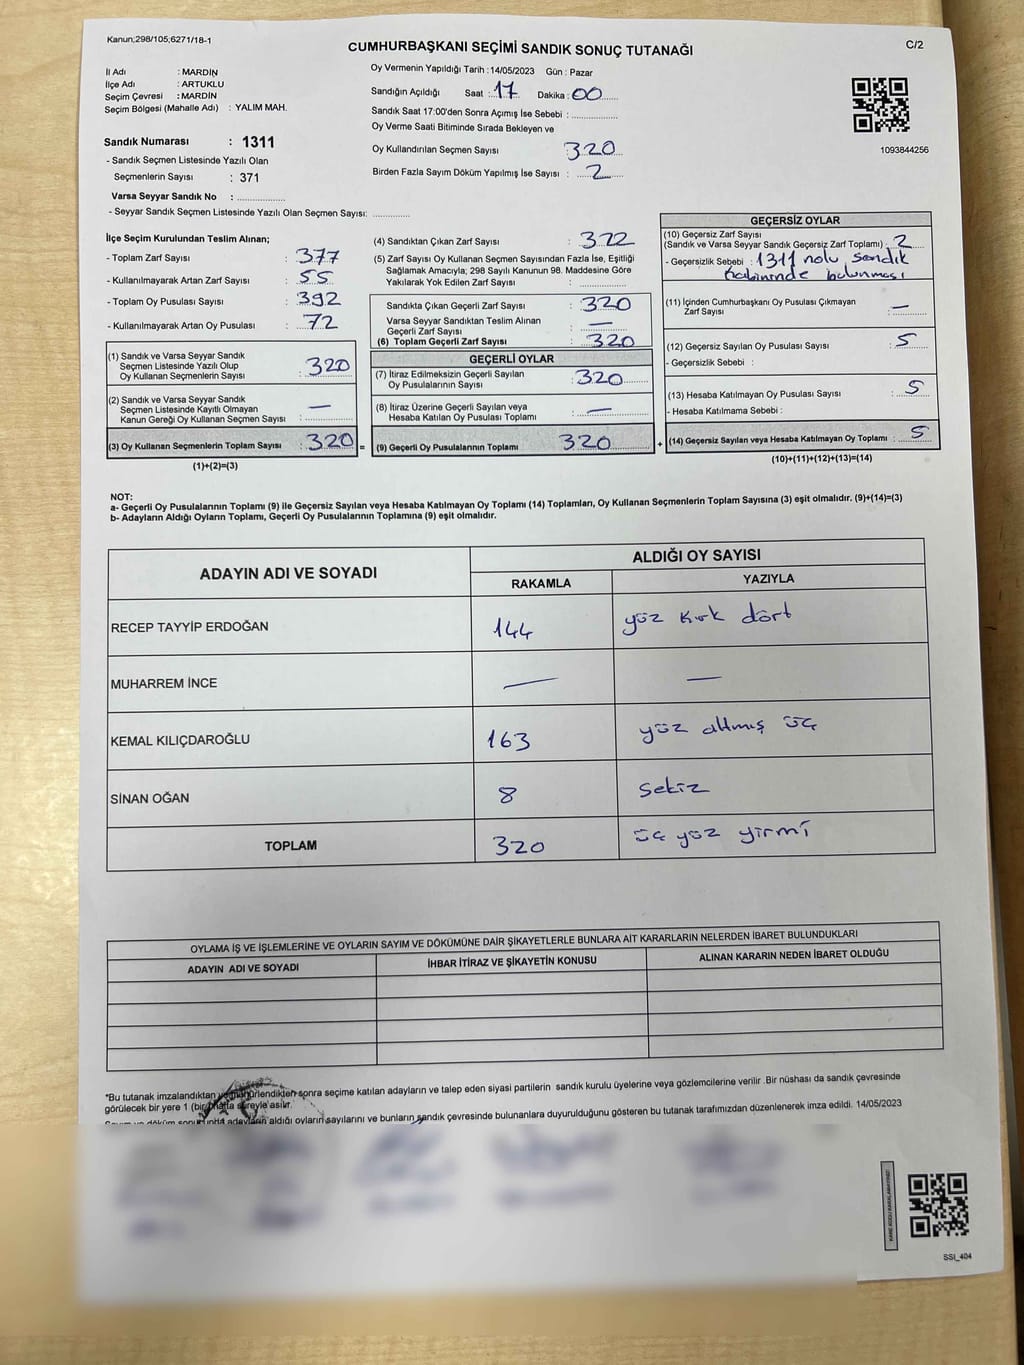 Kanun;298/105;6271/18-1
CUMHURBAŞKANI SEÇİMİ SANDIK SONUÇ TUTANAĞI
C/2
İl Adı : MARDİN
İlçe Adı : ARTUKLU
Seçim Çevresi : MARDİN
Seçim Bölgesi (Mahalle Adı) : YALIM MAH.
Sandık Numarası : 1311
- Sandık Seçmen Listesinde Yazılı Olan
Seçmenlerin Sayısı : 371
Varsa Seyyar Sandık No : ..................
- Seyyar Sandık Seçmen Listesinde Yazılı Olan Seçmen Sayısı: ..............
Oy Vermenin Yapıldığı Tarih : 14/05/2023 Gün : Pazar
Sandığın Açıldığı Saat : 17 Dakika : 00
Sandık Saat 17:00'den Sonra Açımış İse Sebebi : ..................
Oy Verme Saati Bitiminde Sırada Bekleyen ve
Oy Kullandırılan Seçmen Sayısı 320
Birden Fazla Sayım Döküm Yapılmış İse Sayısı : 2
1093844256
İlçe Seçim Kurulundan Teslim Alınan;
- Toplam Zarf Sayısı : 377
- Kullanılmayarak Artan Zarf Sayısı : 55
- Toplam Oy Pusulası Sayısı : 392
- Kullanılmayarak Artan Oy Pusulası : 72
(1) Sandık ve Varsa Seyyar Sandık
Seçmen Listesinde Yazılı Olup
Oy Kullanan Seçmenlerin Sayısı : 320
(2) Sandık ve Varsa Seyyar Sandık
Seçmen Listesinde Kayıtlı Olmayan
Kanun Gereği Oy Kullanan Seçmen Sayısı : —
(3) Oy Kullanan Seçmenlerin Toplam Sayısı : 320 =
(1)+(2)=(3)
(4) Sandıktan Çıkan Zarf Sayısı : 322
(5) Zarf Sayısı Oy Kullanan Seçmen Sayısından Fazla İse, Eşitliği
Sağlamak Amacıyla; 298 Sayılı Kanunun 98. Maddesine Göre
Yakılarak Yok Edilen Zarf Sayısı : ..............
Sandıkta Çıkan Geçerli Zarf Sayısı : 320
Varsa Seyyar Sandıktan Teslim Alınan
Geçerli Zarf Sayısı : —
(6) Toplam Geçerli Zarf Sayısı : 320
GEÇERLİ OYLAR
(7) İtiraz Edilmeksizin Geçerli Sayılan
Oy Pusulalarının Sayısı : 320
(8) İtiraz Üzerine Geçerli Sayılan veya
Hesaba Katılan Oy Pusulası Toplamı : —
(9) Geçerli Oy Pusulalarının Toplamı 320 +
GEÇERSİZ OYLAR
(10) Geçersiz Zarf Sayısı
(Sandık ve Varsa Seyyar Sandık Geçersiz Zarf Toplamı) : 2
- Geçersizlik Sebebi : 1311 nolu sandık
kabininde bulunması
(11) İçinden Cumhurbaşkanı Oy Pusulası Çıkmayan
Zarf Sayısı : —
(12) Geçersiz Sayılan Oy Pusulası Sayısı : 5
- Geçersizlik Sebebi :
(13) Hesaba Katılmayan Oy Pusulası Sayısı : 5
- Hesaba Katılmama Sebebi :
(14) Geçersiz Sayılan veya Hesaba Katılmayan Oy Toplamı : 5
(10)+(11)+(12)+(13)=(14)
NOT:
a- Geçerli Oy Pusulalarının Toplamı (9) ile Geçersiz Sayılan veya Hesaba Katılmayan Oy Toplamı (14) Toplamları, Oy Kullanan Seçmenlerin Toplam Sayısına (3) eşit olmalıdır. (9)+(14)=(3)
b- Adayların Aldığı Oyların Toplamı, Geçerli Oy Pusulalarının Toplamına (9) eşit olmalıdır.
ADAYIN ADI VE SOYADI
ALDIĞI OY SAYISI
RAKAMLA YAZIYLA
RECEP TAYYİP ERDOĞAN 144 yüz kırk dört
MUHARREM İNCE — —
KEMAL KILIÇDAROĞLU 163 yüz altmış üç
SİNAN OĞAN 8 sekiz
TOPLAM 320 üç yüz yirmi
OYLAMA İŞ VE İŞLEMLERİNE VE OYLARIN SAYIM VE DÖKÜMÜNE DAİR ŞİKAYETLERLE BUNLARA AİT KARARLARIN NELERDEN İBARET BULUNDUKLARI
ADAYIN ADI VE SOYADI İHBAR İTİRAZ VE ŞİKAYETİN KONUSU ALINAN KARARIN NEDEN İBARET OLDUĞU
*Bu tutanak imzalandıktan ve mühürlendikten sonra seçime katılan adayların ve talep eden siyasi partilerin sandık kurulu üyelerine veya gözlemcilerine verilir .Bir nüshası da sandık çevresinde
görülecek bir yere 1 (bir) hafta süreyle asılır.
Sayım ve döküm sonucunda adayların aldığı oyların sayılarını ve bunların sandık çevresinde bulunanlara duyurulduğunu gösteren bu tutanak tarafımızdan düzenlenerek imza edildi. 14/05/2023
SSI_404